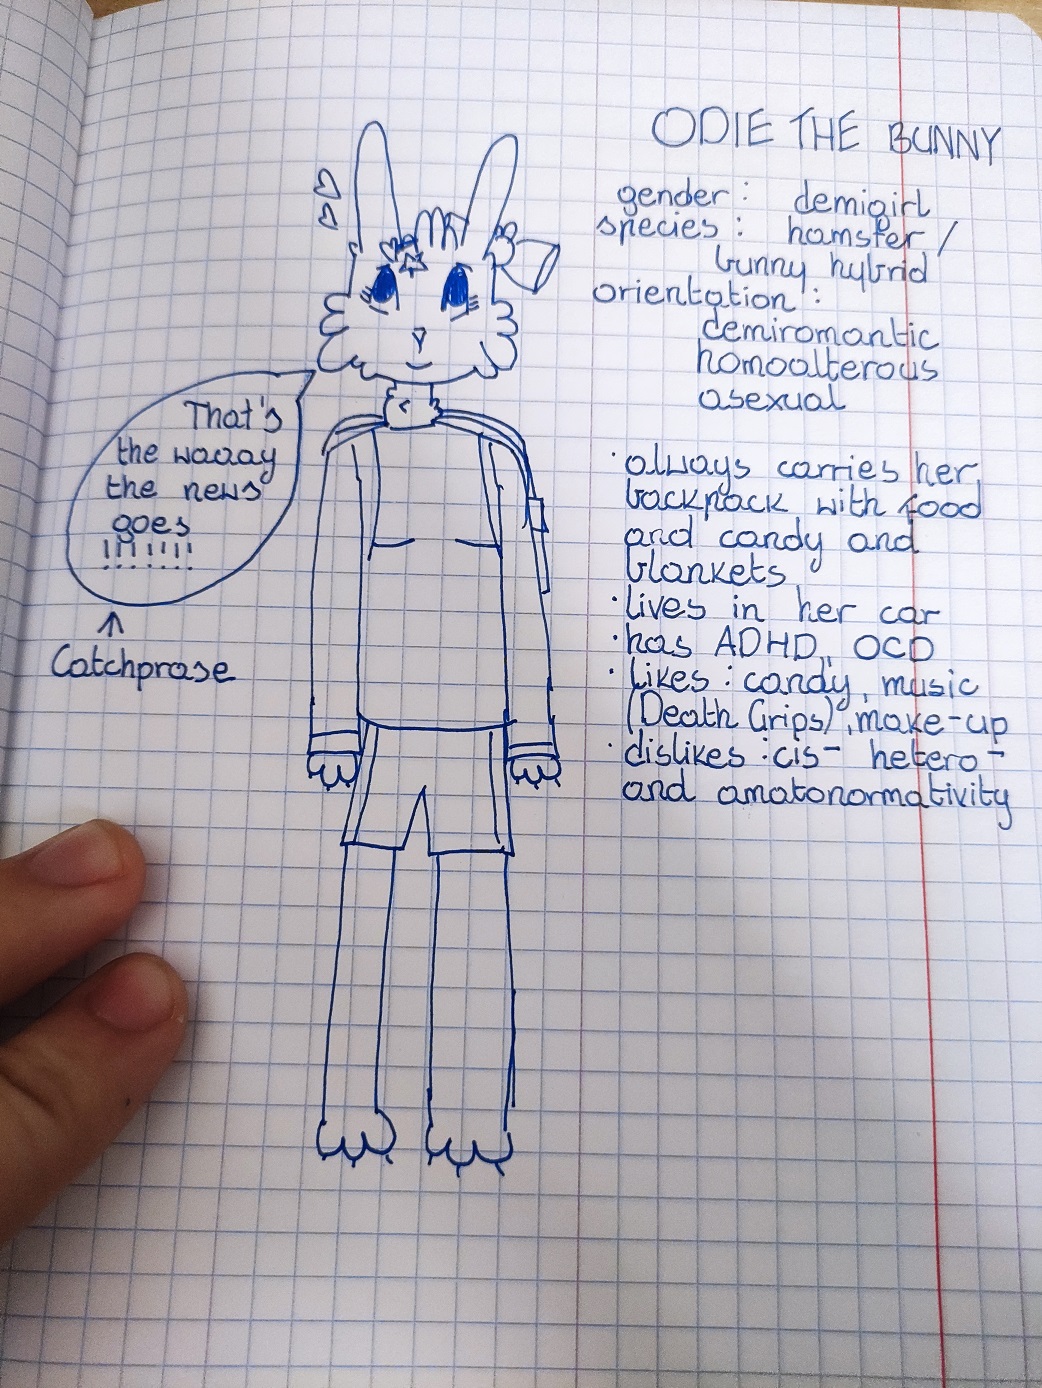 ODIE THE BUNNY
gender: demigirl
species: hamster /
bunny hybrid
orientation:
demiromantic
homoalterous
asexual
· always carries her
backpack with food
and candy and
blankets
· lives in her car
· has ADHD, OCD
· likes: candy, music
(Death Grips), make-up
· dislikes: cis- hetero-
and amatonormativity
That's
the waaay
the news
goes
!!!!!!!
↑
Catchprase